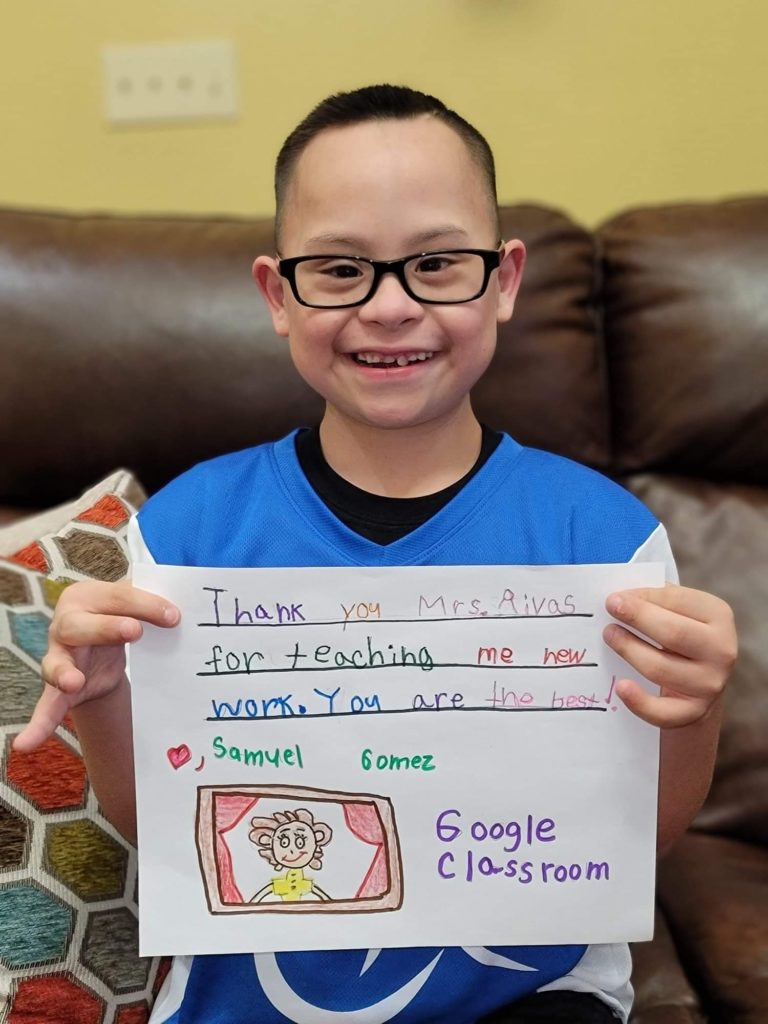 Thank you Mrs. Rivas
for teaching me new
work. You are the best!
❤, Samuel Gomez
Google
Classroom